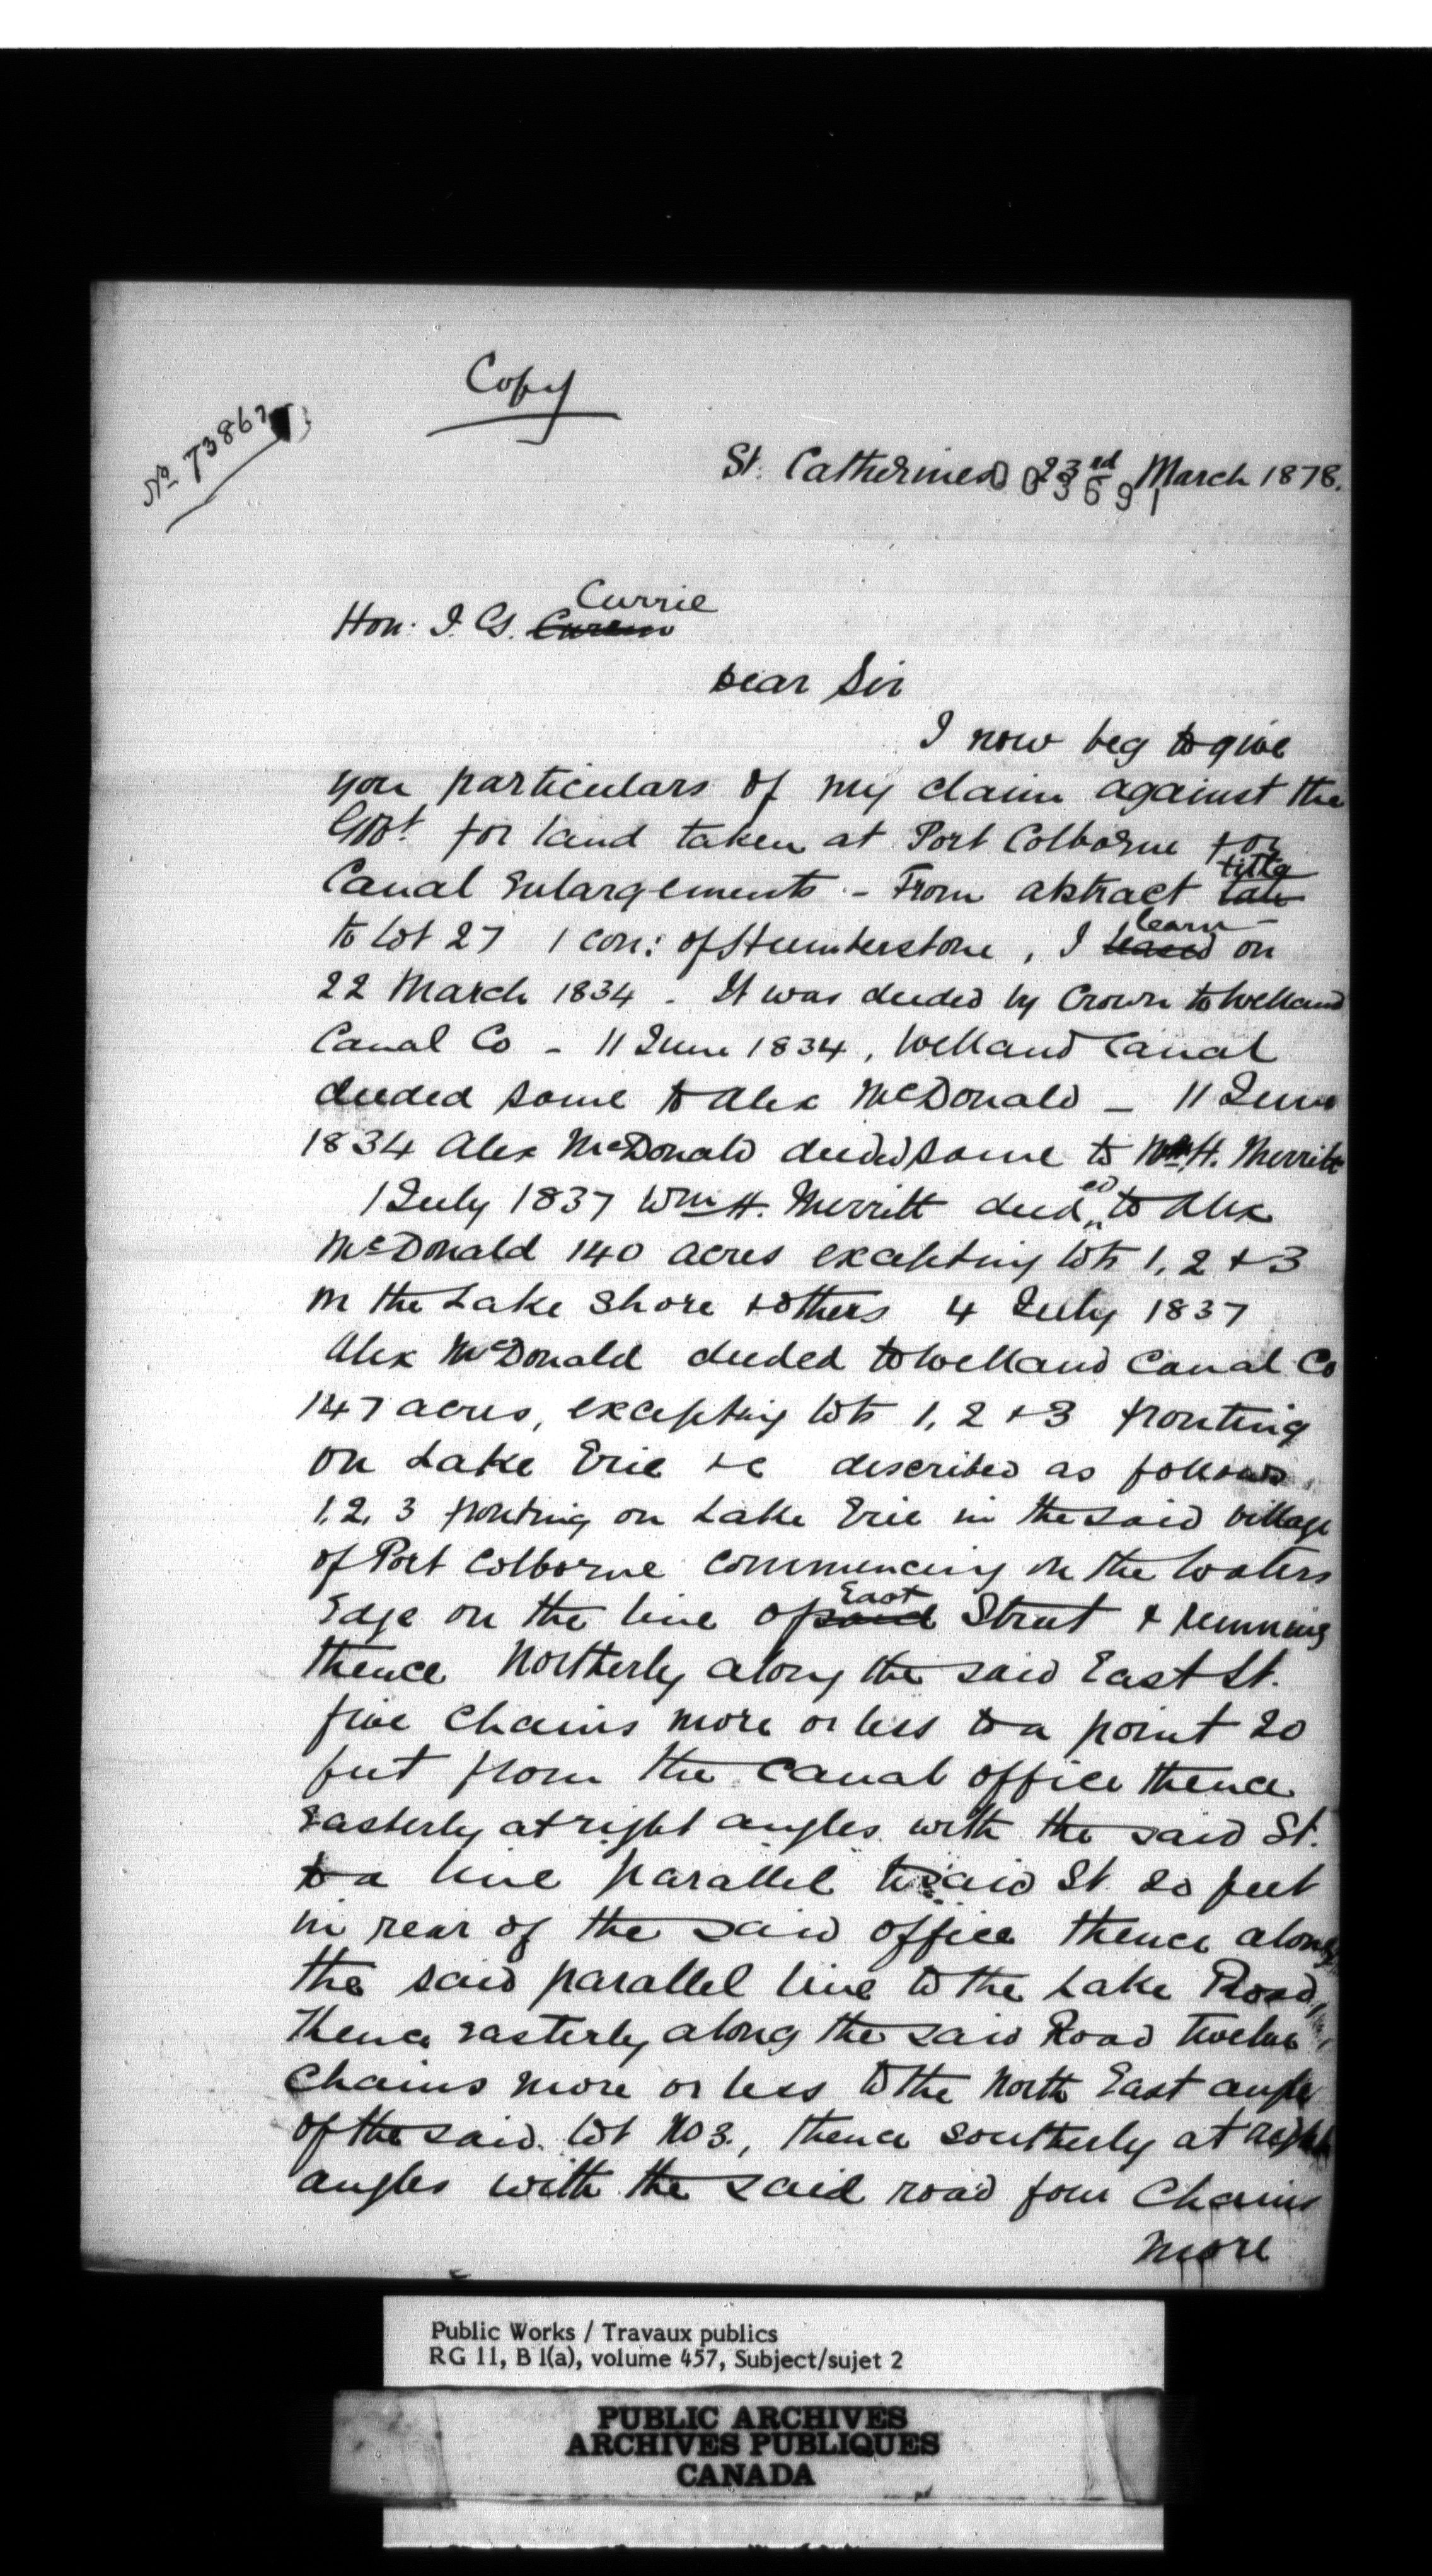 Copy
No 73867
St. Catherines 23rd March 1878.
003691
Currie
Hon: J. G. Curem
Dear Sir
I now beg to give
you particulars of my claim against the
Govt. for land taken at Port Colborne for
Canal Enlargements - From abstract title
to lot 27 1 con: of Humberstone, I learn on
22 March 1834 - It was deeded by Crown to Welland
Canal Co - 11 June 1834, Welland Canal
deeded same to Alex McDonald - 11 June
1834 Alex McDonald deeded same to Wm H. Merritt
1 July 1837 Wm H. Merritt deeded to Alex
McDonald 140 acres excepting lots 1, 2 & 3
on the Lake Shore & others 4 July 1837
Alex McDonald deeded to Welland Canal Co
147 acres, excepting lots 1, 2 & 3 fronting
on Lake Erie &c described as follows
1, 2, 3 fronting on Lake Erie in the said village
of Port Colborne commencing on the waters
Edge on the line of said East Street & running
thence Northerly along the said East St.
five Chains more or less to a point 20
feet from the Canal office thence
Easterly at right angles with the said St.
to a line parallel to said St. 20 feet
in rear of the said office thence along
the said parallel line to the Lake Road,
Thence Easterly along the said Road Twelve
Chains more or less to the North East angle
of the said lot No 3., thence southerly at right
angles with the said road four Chains
more
Public Works / Travaux publics
RG 11, B 1(a), volume 457, Subject/sujet 2
PUBLIC ARCHIVES
ARCHIVES PUBLIQUES
CANADA